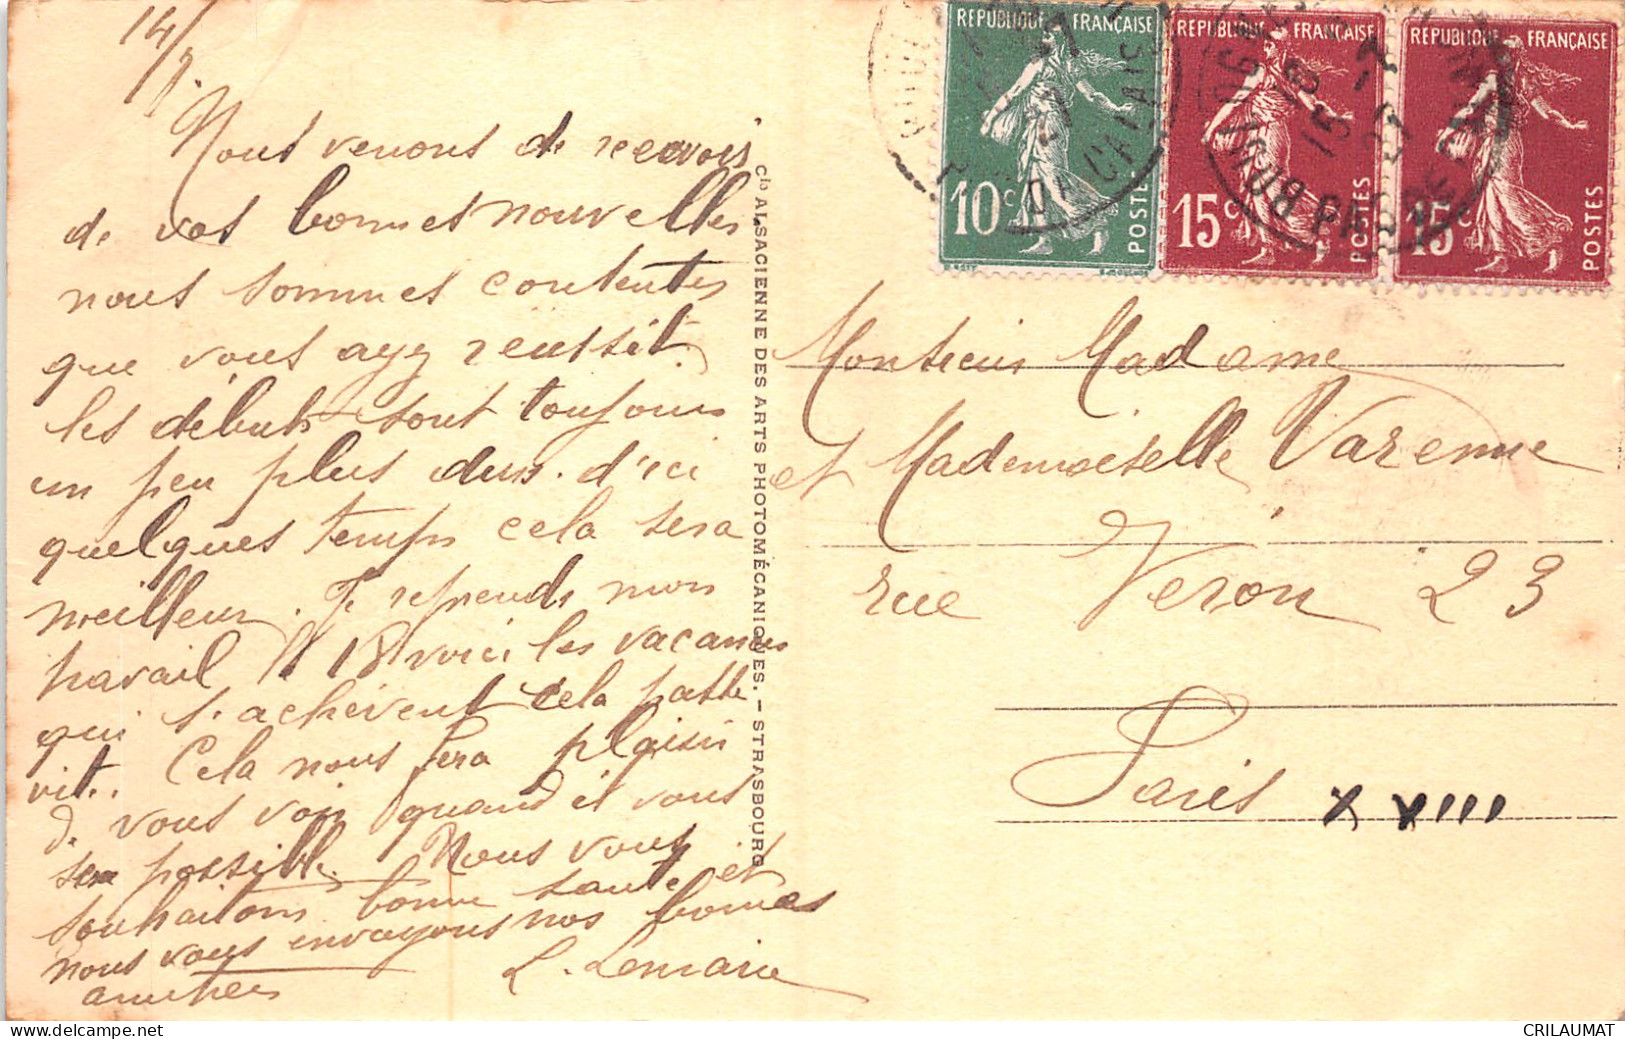 14/9.
Nous venons de recevoir
de vos bonnes nouvelles
nous sommes contentes
que vous ayz réussit
les débuts sont toujours
un peu plus durs. d'ici
quelques temps cela sera
meilleur. Je reprends mon
travail le 18 voici les vacances
qui s'achèvent cela passe
vite. Cela nous fera plaisir
de vous voir quand il vous
sera possible. Nous vous
souhaitons bonne santé et
nous vous envoyons nos bonnes
amitiées
L. Lemaire
Cie ALSACIENNE DES ARTS PHOTOMÉCANIQUES. – STRASBOURG
RÉPUBLIQUE FRANÇAISE
10c
POSTES
RÉPUBLIQUE FRANÇAISE
15c
POSTES
RÉPUBLIQUE FRANÇAISE
15c
POSTES
PAS DE CALAIS
Monsieur Madame
et Mademoiselle Varenne
rue Veron 23
Paris XVIII
CRILAUMAT